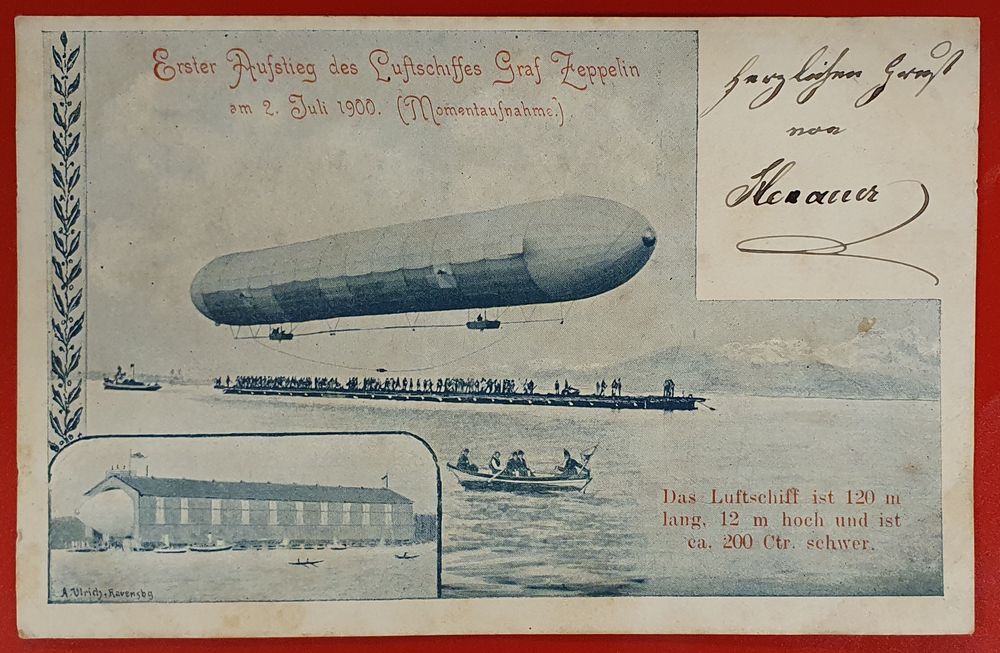 Erster Aufstieg des Luftschiffes Graf Zeppelin
am 2. Juli 1900. (Momentaufnahme.)
Herzlichen Gruß
von
Das Luftschiff ist 120 m
lang, 12 m hoch und ist
ca. 200 Ctr. schwer.
A. Ulrich, Ravensbg